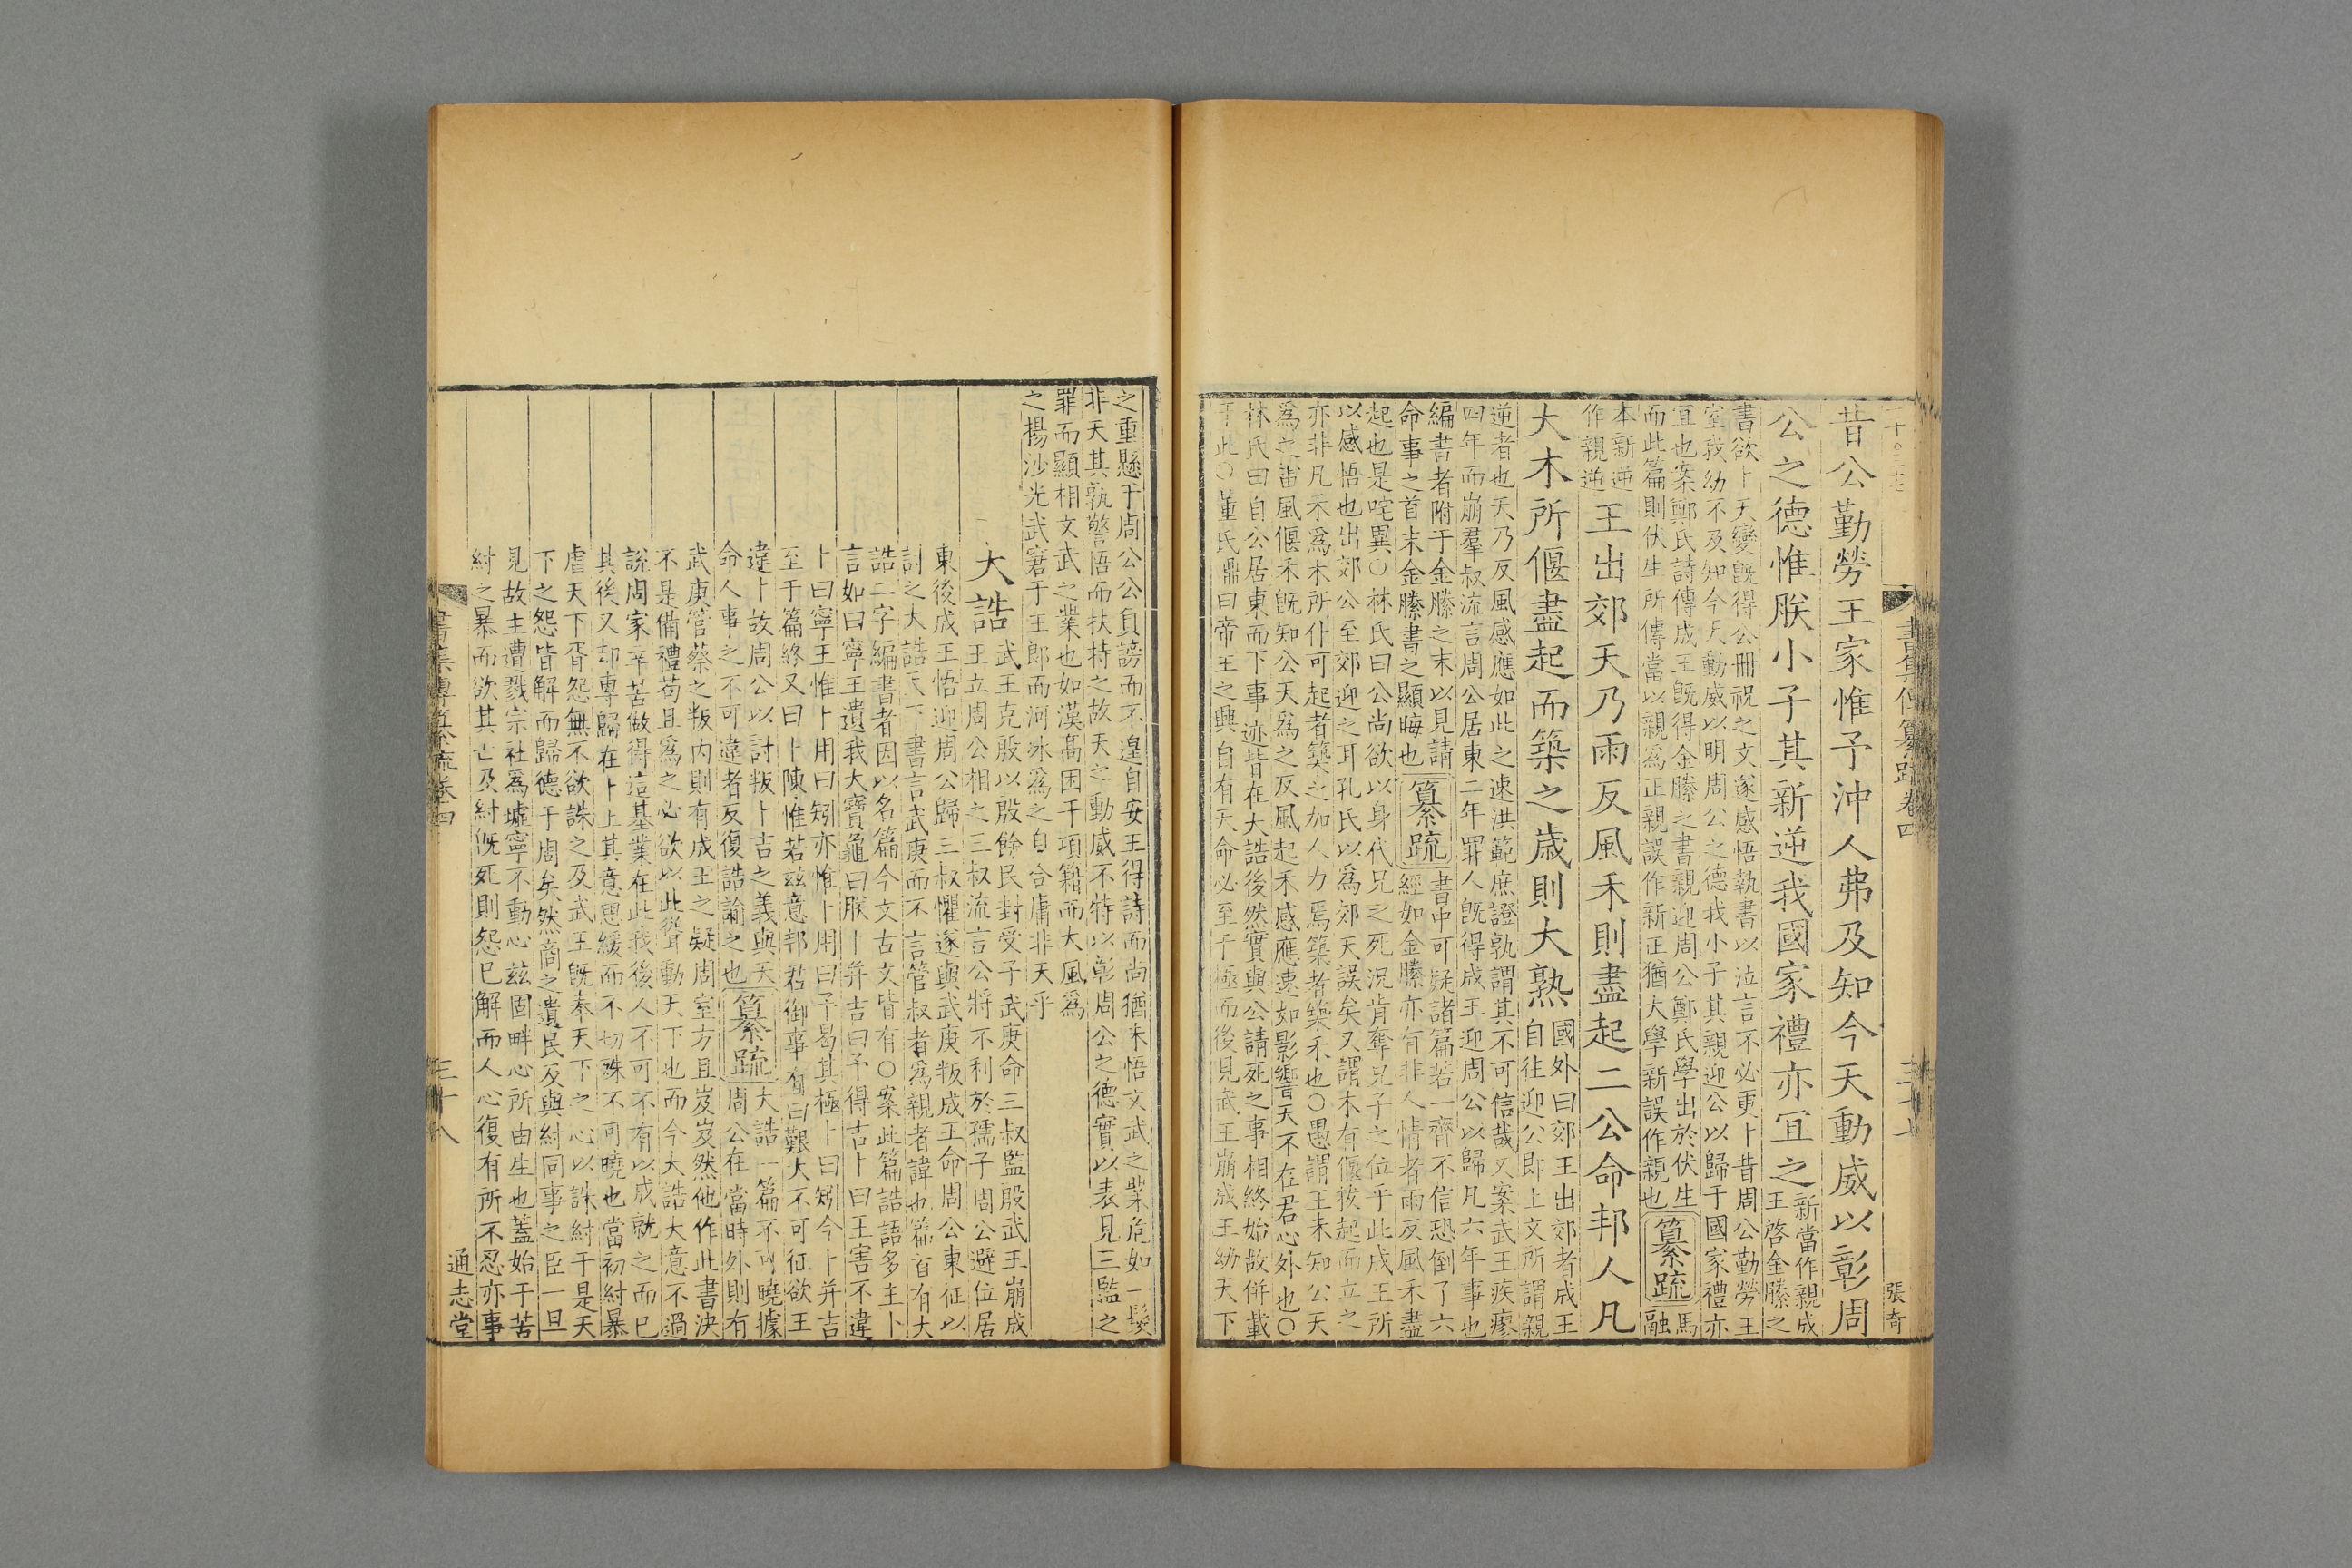 書集傳纂疏卷四
三十七
張奇
昔公勤勞王家惟予沖人弗及知今天動威以彰周
公之德惟朕小子其新逆我國家禮亦宜之
新當作親成
王啓金縢之
書欲卜天變旣得公冊祝之文遂感悟執書以泣言不必更卜昔周公勤勞王
室我幼不及知今天動威以明周公之德我小子其親迎公以歸于國家禮亦
宜也案鄭氏詩傳成王旣得金縢之書親迎周公鄭氏學出於伏生
而此篇則伏生所傳當以親爲正親誤作新正猶大學新誤作親也
纂疏
馬
融
本新逆
作親逆
王出郊天乃雨反風禾則盡起二公命邦人凡
大木所偃盡起而築之歲則大熟
國外曰郊王出郊者成王
自往迎公卽上文所謂親
逆者也天乃反風感應如此之速洪範庶證孰謂其不可信哉又案武王疾瘳
四年而崩羣叔流言周公居東二年罪人旣得成王迎周公以歸凡六年事也
編書者附于金縢之末以見請
命事之首末金縢書之顯晦也
纂疏
書中可疑諸篇若一齊不信恐倒了六
經如金縢亦有非人情者雨反風禾盡
起也是咤異○林氏曰公尚欲以身代兄之死況肯奪兄子之位乎此成王所
以感悟也出郊公至郊迎之耳孔氏以爲郊天誤矣又謂木有偃拔起而立之
亦非凡禾爲木所仆可起者築之加人力焉築者築禾也○愚謂王未知公天
爲之雷風偃禾旣知公天爲之反風起禾感應速如影響天不在君心外也○
林氏曰自公居東而下事迹皆在大誥後然實與公請死之事相終始故倂載
于此○董氏鼎曰帝王之興自有天命必至于極而後見武王崩成王幼天下
之重懸于周公公負謗而不遑自安王得詩而尚猶未悟文武之業危如一髮
非天其孰警悟而扶持之故天之動威不特以彰周公之德實以表見三監之
罪而顯相文武之業也如漢高困于項籍而大風爲
之揚沙光武窘于王郎而河冰爲之自合庸非天乎
大誥
武王克殷以殷餘民封受子武庚命三叔監殷武王崩成
王立周公相之三叔流言公將不利於孺子周公避位居
東後成王悟迎周公歸三叔懼遂與武庚叛成王命周公東征以
討之大誥天下書言武庚而不言管叔者爲親者諱也篇首有大
誥二字編書者因以名篇今文古文皆有○案此篇誥語多主卜
言如曰寧王遺我大寶龜曰朕卜幷吉曰予得吉卜曰王害不違
卜曰寧王惟卜用曰矧亦惟卜用曰予曷其極卜曰矧今卜幷吉
至于篇終又曰卜陳惟若茲意邦君御事有曰艱大不可征欲王
違卜故周公以討叛卜吉之義與天
命人事之不可違者反復誥諭之也
纂疏
大誥一篇不可曉據
周公在當時外則有
武庚管蔡之叛內則有成王之疑周室方且岌岌然他作此書決
不是備禮苟且爲之必欲以此聳動天下也而今大誥大意不過
說周家辛苦做得這基業在此我後人不可不有以成就之而已
其後又却專歸在卜上其意思緩而不切殊不可曉也當初紂暴
虐天下胥怨無不欲誅之及武王旣奉天下之心以誅紂于是天
下之怨皆解而歸德于周矣然商之遺民及與紂同事之臣一旦
見故主遭戮宗社爲墟寧不動心茲固畔心所由生也蓋始于苦
紂之暴而欲其亡及紂旣死則怨已解而人心復有所不忍亦事
書集傳纂疏卷四
三十八
通志堂